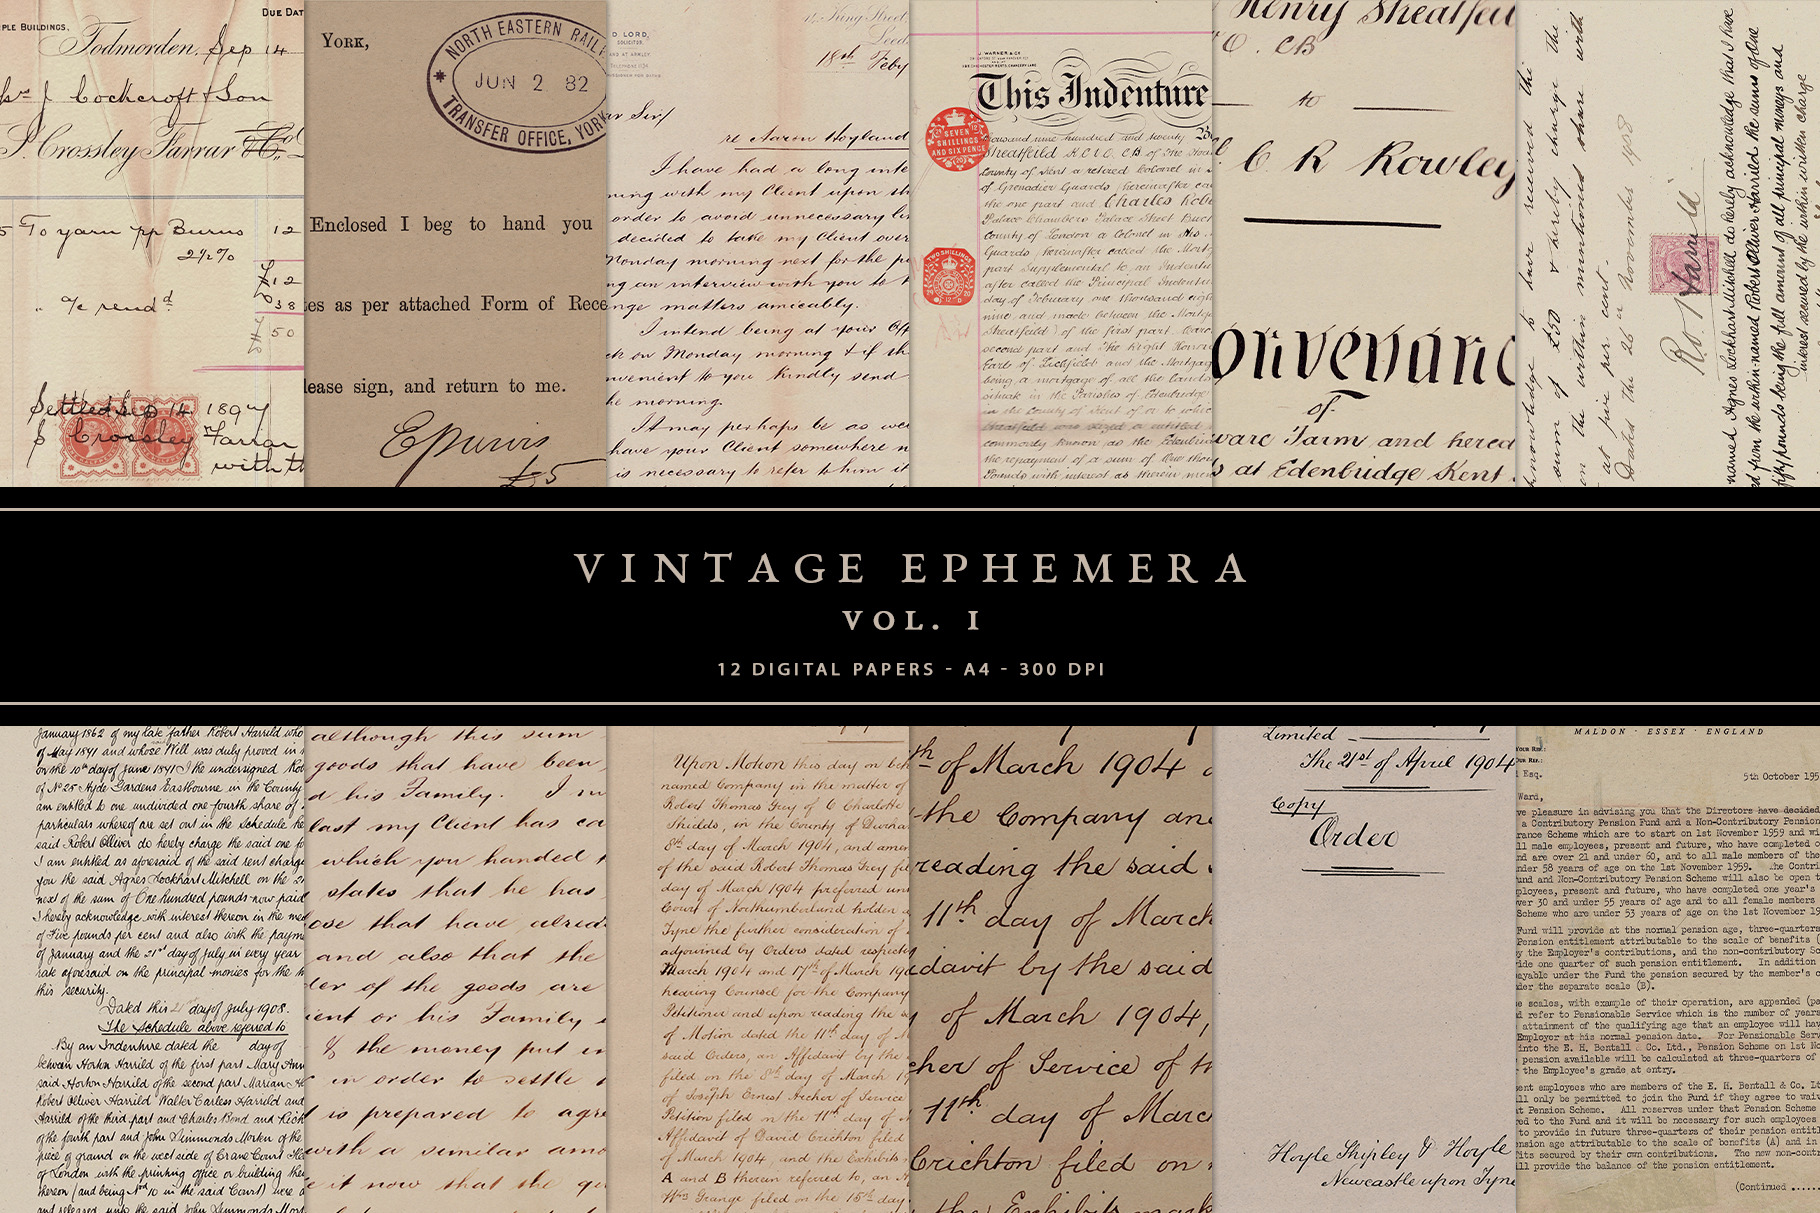 DUE DAT
PLE BUILDINGS,
Todmorden, Sep 14
J Cockcroft & Son
Crossley Farrar
To yarn pp Burns 12
2½%
12
38
50
Settled Sep 14 1897
Crossley Farrar
with th
YORK,
NORTH EASTERN RAIL
JUN 2 82
TRANSFER OFFICE, YORK
Enclosed I beg to hand you
tes as per attached Form of Rece
lease sign, and return to me.
£5
D. LORD,
SOLICITOR.
King Street
Leed
18th Feby
ar Sir/
re Aaron Hoyland
I have had a long inte
ning with my Client upon th
order to avoid unnecessary li
decided to take my Client over
Monday morning next for the p
ng an interview with you to
nge matters amicably.
I intend being at your Off
ck on Monday morning & if th
nvenient to you kindly send
he morning.
It may perhaps be as wel
have your Client somewhere n
is necessary to refer to him it
J. WARNER & Co
This Indenture
SEVEN
SHILLINGS
AND SIXPENCE
TWO SHILLINGS
thousand nine hundred and twenty
Sheatfeild K.C.V.O. C.B. of The
County of Kent a retired Colonel in
of Grenadier Guards (hereinafter ca
the one part and Charles Robe
Palace Chambers Palace Street Buck
County of London a Colonel in His
Guards hereinafter called the Mort
part Supplemental to an Indentu
after called the Principal Indentu
day of February one thousand eigh
nine and made between the Mortg
Sheatfeild) of the first part
second part and The Right Honor
Earls of Lichfield and the Mortgag
being a mortgage of all the lands
situate in the Parishes of Edenbridge
in the County of Kent of or to whic
commonly known as the Edenbrid
the repayment of a sum of One thou
Pounds with interest as therein men
Henry Sheatfeil
O. CB
to
C R Rowley
onveyanc
of
ware Farm and hered
s at Edenbridge Kent
knowledge to have received the
sum of £50 & hereby charge the
on the within mentioned share with
at five per cent.
Dated the 26th November 1908
Harrild
named Agnes Lockhart Mitchell do hereby acknowledge that I have
ed from the within-named Robert Olliver Harrild the sum of One
fifty pounds being the full amount of all principal moneys and
interest secured by the within written charge
VINTAGE EPHEMERA
VOL. I
12 DIGITAL PAPERS - A4 - 300 DPI
January 1862 of my late father Robert Harrild who
of May 1841 and whose Will was duly proved in
on the 10th day of June 1841 I the undersigned Rob
of No 25 Hyde Gardens Eastbourne in the County
am entitled to one undivided one fourth share of
particulars whereof are set out in the Schedule he
said Robert Olliver do hereby charge the said one fo
I am entitled as aforesaid of the said rent charge
you the said Agnes Lockhart Mitchell on the
next of the sum of One hundred pounds now paid
I hereby acknowledge with interest thereon in the me
of Five pounds per cent and also with the paym
of January and the 21st day of July in every year
rate aforesaid on the principal monies for the
this security.
Dated this 21 day of July 1908.
The Schedule above referred to
By an Indenture dated the day of
between Horton Harrild of the first part Mary Ann
said Horton Harrild of the second part Marian H
Robert Olliver Harrild Walter Carless Harrild and
Harrild of the third part and Charles Bond and Rich
of the fourth part and John Simmonds Morten of the
piece of ground on the west side of Crane Court
of London with the printing office or building the
thereon (and being No 10 in the said Court) were
and released unto the said John Simmonds Mort
although this sum
goods that have been
d his Family. I
last my Client has ca
which you handed
states that he has
ove that have alread
and also that the
der of the goods are
ient or his Family
the money put in
in order to settle
is prepared to agre
with a similar amo
it now that the
Upon Motion this day on beh
named Company in the matter of
Robert Thomas Grey of 6 Charlotte
Shields, in the County of Durham
8th day of March 1904, and amen
of the said Robert Thomas Grey fil
day of March 1904 preferred un
Court of Northumberland holden
Tyne the further consideration of
adjourned by Orders dated respecti
March 1904 and 17th of March 19
hearing Counsel for the Company
Petitioner and upon reading the
of Motion dated the 11th day of M
said Orders, an Affidavit by the
filed on the 8th day of March 19
of Joseph Ernest Archer of Service
Petition filed on the 11th day of
Affidavit of David Crichton filed
of March 1904, and the Exhibits
A and B therein referred to, an A
Wm Grange filed on the 15th day
th of March 1904
the Company an
reading the said
11th day of March
idavit by the said
of March 1904,
cher of Service of th
11th day of Marc
Crichton filed on
the Exhibits mark
Limited
The 21st of April 1904
Copy
Order
Hoyle Shipley & Hoyle
Newcastle upon Tyne
MALDON · ESSEX · ENGLAND
YOUR REF.:
OUR REF.:
Esq.
5th October 195
Ward,
ve pleasure in advising you that the Directors have decided
a Contributory Pension Fund and a Non-Contributory Pension
rance Scheme which are to start on 1st November 1959 and wi
ll male employees, present and future, who have completed o
nd are over 21 and under 60, and to all male members of the
nder 58 years of age on the 1st November 1959. The Contri
und and Non-Contributory Pension Scheme will also be open t
ployees, present and future, who have completed one year's
ver 30 and under 55 years of age and to all female members
Scheme who are under 53 years of age on the 1st November 19
Fund will provide at the normal pension age, three-quarters
Pension entitlement attributable to the scale of benefits (
y the Employer's contributions, and the non-contributory Sc
ide one quarter of such pension entitlement. In addition
ayable under the Fund the pension secured by the member's c
der the separate scale (B).
e scales, with example of their operation, are appended (pa
d refer to Pensionable Service which is the number of years
attainment of the qualifying age that an employee will hav
Employer at his normal pension date. For Pensionable Serv
into the E. H. Bentall & Co. Ltd., Pension Scheme on 1st No
pension available will be calculated at three-quarters of
the Employee's grade at entry.
sent employees who are members of the E. H. Bentall & Co. Lt
ll only be permitted to join the Fund if they agree to waiv
t Pension Scheme. All reserves under that Pension Scheme
red to the Fund and it will be necessary for such employees
to provide in future three-quarters of their pension entitl
nsion age attributable to the scale of benefits (A) and in
its secured by their own contributions. The new non-contr
ll provide the balance of the pension entitlement.
(Continued ......